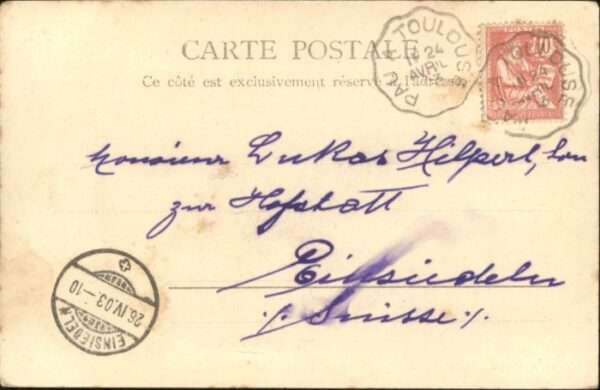 CARTE POSTALE
Ce côté est exclusivement réservé à l'adresse
PAU A TOULOUSE
24
AVRIL
10
TOULOUSE
Monsieur Lukas Hilpert,
zur Hofstatt
Einsiedeln
./. Suisse ./.
EINSIEDELN
26.IV.03.-10